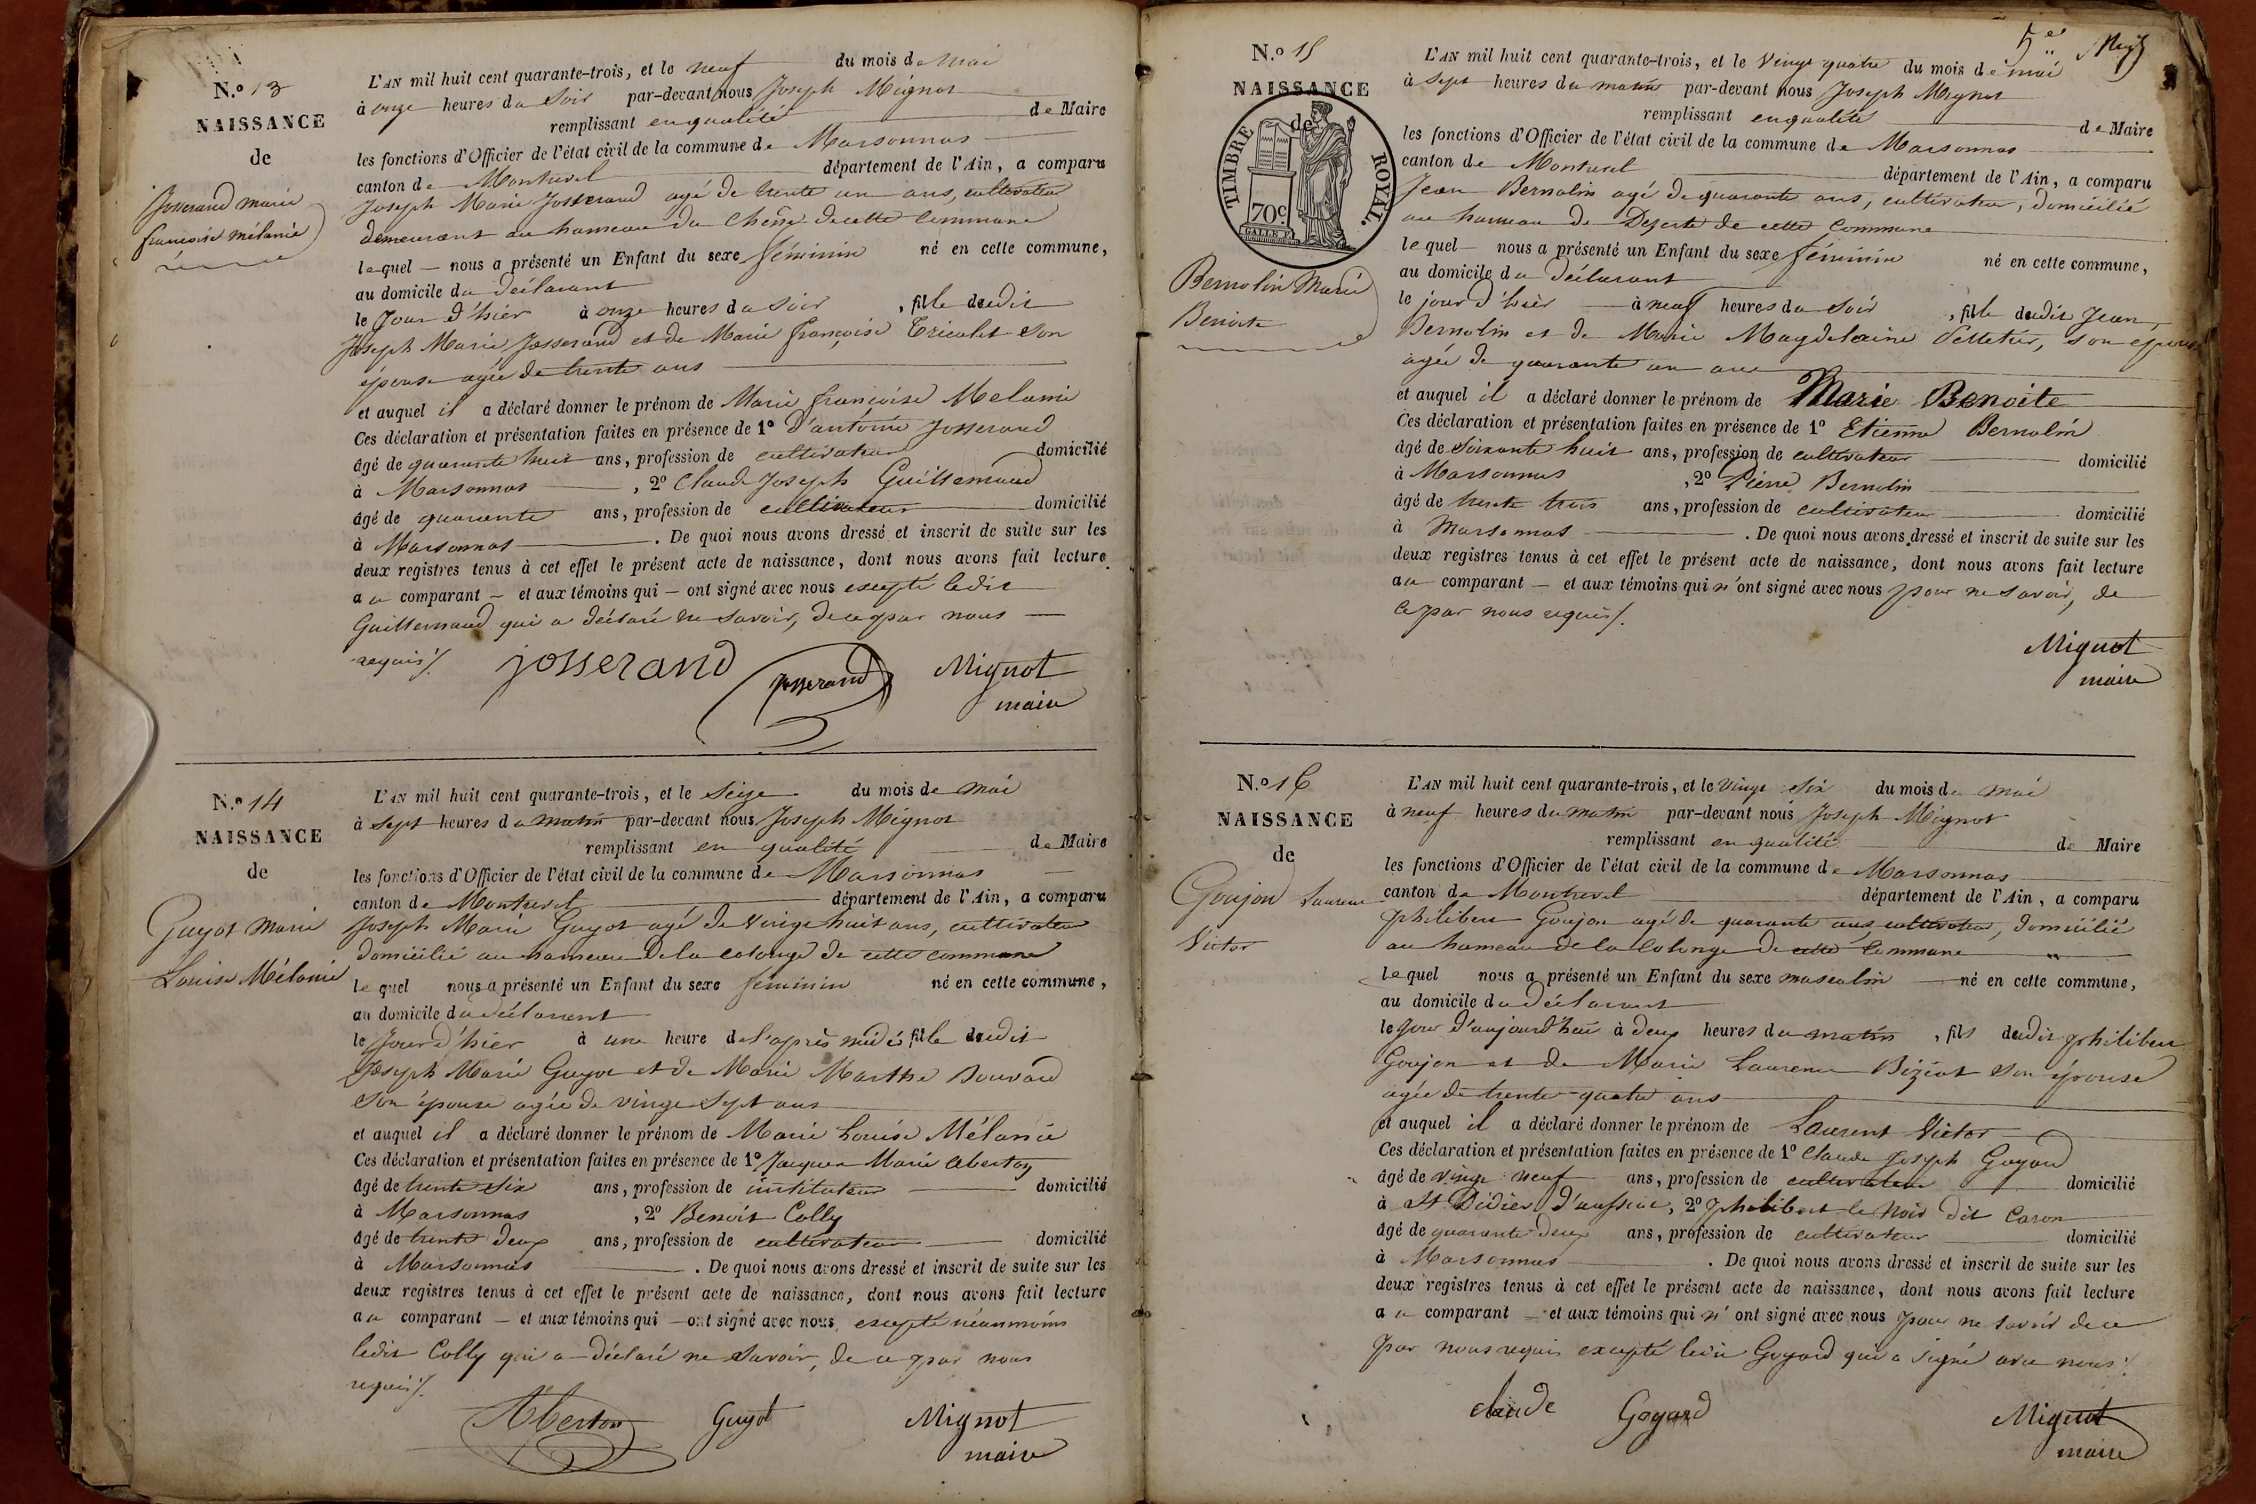 N.º 13
NAISSANCE
de
Josserand marie
françoise mélanie
L'AN mil huit cent quarante-trois, et le neuf du mois de mai
à onze heures du soir par-devant nous Joseph Mignot
remplissant en qualité de Maire
les fonctions d'Officier de l'état civil de la commune de Marsonnas
canton de Montrevel département de l'Ain, a comparu
Joseph Marie Josserand agé de trente un ans, cultivateur
demeurant au hameau du Chêne de cette Commune
lequel nous a présenté un Enfant du sexe féminin né en cette commune,
au domicile du déclarant
le Jour d'hier à onze heures du soir, fille dudit
Joseph Marie Josserand et de Marie françoise Tricolet son
épouse agée de trente ans
et auquel il a déclaré donner le prénom de Marie françoise Melanie
Ces déclaration et présentation faites en présence de 1º D'antoine Josserand
âgé de quarante huit ans, profession de cultivateur domicilié
à Marsonnas, 2º Claude Joseph Guillemaud
âgé de quarante ans, profession de cultivateur domicilié
à Marsonnas. De quoi nous avons dressé et inscrit de suite sur les
deux registres tenus à cet effet le présent acte de naissance, dont nous avons fait lecture
au comparant et aux témoins qui ont signé avec nous excepté ledit
Guillemaud qui a déclaré ne savoir, de ce par nous
requis /.
josserand Josserand Mignot
maire
N.º 14
NAISSANCE
de
Guyot Marie
Louise Mélanie
L'AN mil huit cent quarante-trois, et le Seize du mois de mai
à sept heures du matin par-devant nous Joseph Mignot
remplissant en qualité de Maire
les fonctions d'Officier de l'état civil de la commune de Marsonnas
canton de Montrevel département de l'Ain, a comparu
Joseph Marie Guyot agé de vingt huit ans, cultivateur
domicilié au hameau de la colonge de cette commune
lequel nous a présenté un Enfant du sexe féminin né en cette commune,
au domicile du déclarant
le Jour d'hier à une heure de l'après midi, fille dudit
Joseph Marie Guyot et de Marie Marthe Bouvard
son épouse agée de vingt sept ans
et auquel il a déclaré donner le prénom de Marie Louise Mélanie
Ces déclaration et présentation faites en présence de 1º Jacques Marie Aberton
âgé de trente six ans, profession de instituteur domicilié
à Marsonnas, 2º Benoit Colly
âgé de trente deux ans, profession de cultivateur domicilié
à Marsonnas. De quoi nous avons dressé et inscrit de suite sur les
deux registres tenus à cet effet le présent acte de naissance, dont nous avons fait lecture
au comparant et aux témoins qui ont signé avec nous excepté néanmoins
ledit Colly qui a déclaré ne savoir, de ce par nous
requis /.
Aberton Guyot Mignot
maire
5e
N.º 15
NAISSANCE
de
TIMBRE ROYAL.
70c.
Bernolin Marie
Benoite
L'AN mil huit cent quarante-trois, et le vingt quatre du mois de mai
à sept heures du matin par-devant nous Joseph Mignot
remplissant en qualité de Maire
les fonctions d'Officier de l'état civil de la commune de Marsonnas
canton de Montrevel département de l'Ain, a comparu
Jean Bernolin agé de quarante ans, cultivateur, domicilié
au hameau de Deserte de cette Commune
lequel nous a présenté un Enfant du sexe féminin né en cette commune,
au domicile du déclarant
le jour d'hier à neuf heures du soir, fille dudit Jean
Bernolin et de Marie Magdelaine Pelletier, son épouse
agée de quarante un ans
et auquel il a déclaré donner le prénom de Marie Benoite
Ces déclaration et présentation faites en présence de 1º Etienne Bernolin
âgé de Soixante huit ans, profession de cultivateur domicilié
à Marsonnas, 2º Pierre Bernolin
âgé de trente trois ans, profession de cultivateur domicilié
à Marsonnas. De quoi nous avons dressé et inscrit de suite sur les
deux registres tenus à cet effet le présent acte de naissance, dont nous avons fait lecture
au comparant et aux témoins qui n'ont signé avec nous pour ne savoir, de
ce par nous requis /.
Mignot
maire
N.º 16
NAISSANCE
de
Goujon Laurent
Victor
L'AN mil huit cent quarante-trois, et le vingt six du mois de mai
à neuf heures du matin par-devant nous Joseph Mignot
remplissant en qualité de Maire
les fonctions d'Officier de l'état civil de la commune de Marsonnas
canton de Montrevel département de l'Ain, a comparu
philibert Goujon agé de quarante ans cultivateur, domicilié
au hameau de la colonge de cette Commune
lequel nous a présenté un Enfant du sexe masculin né en cette commune,
au domicile du déclarant
le jour d'aujourd'hui à deux heures du matin, fils dudit philibert
Goujon et de Marie Laurence Biziat son épouse
agée de trente quatre ans
et auquel il a déclaré donner le prénom de Laurent Victor
Ces déclaration et présentation faites en présence de 1º Claude Joseph Goyard
âgé de vingt neuf ans, profession de cultivateur domicilié
à St Didier d'aussiat, 2º philibert le Noir dit Caron
âgé de quarante deux ans, profession de cultivateur domicilié
à Marsonnas. De quoi nous avons dressé et inscrit de suite sur les
deux registres tenus à cet effet le présent acte de naissance, dont nous avons fait lecture
au comparant et aux témoins qui n'ont signé avec nous pour ne savoir de ce
par nous requis excepté ledit Goyard qui a signé avec nous /.
claude Goyard Mignot
maire